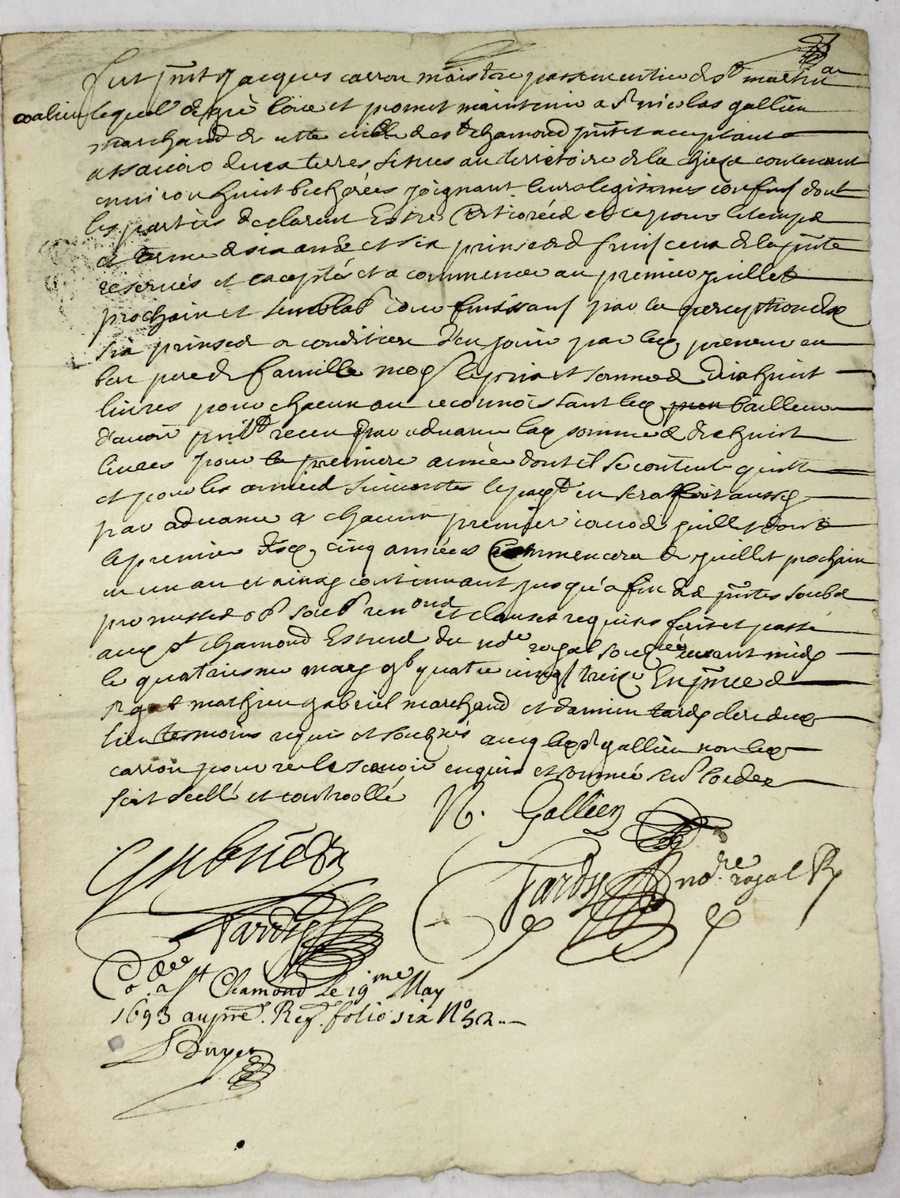 fut pnt Jacques carron maistre passementier de st martin a
coalieu lequel de gré loue et promet maintenir a sr nicolas gallien
marchand de cette ville de st chamond pnt et acceptant
assavoir une terre sizes au territoire de la contenant
environ huict bicherées joignant leurs legitimes confins dont
les parties declarent Entre et ce pour le temps
et terme de six année et six prinses de fruis ceux de la pnte
reservés et exceptés et a commencer au premier juillet
prochain et semblab jour finissant par la perception des
six prinses a condition d'en jouir par led preneur en
bon pere de famille moy le prix et somme de dix huict
livres pour chacun an reconnoissant led bailleur
d'avoir recu par advance lad somme de dix huict
livres pour la premiere année dont il se contente quitte
et pour les années suivantes le payt en sera fait aussy
par advance a chacun premier jour de juillet dont
le premier desd cinq années commencera de juillet prochain
en un an et ainsy continuant jusqu'a fin de pntes soubs
promesses ob soub renond et clauses requises fait et passé
aud st chamond Estude du no.re royal soubsigné avant midy
le quatriesme may gb quatre vingt treize En pnce de
sr mathieu gabriel marchand et damien tardy clerc dud
lieu tesmoins requis et soubsnés avecq led sr gallien non led
carron pour ne le scavoir enquis et sommé
soit scellé et controllé N. Gallien
Gabriel
Tardy no.re royal R
Tardy
Co.dee a St Chamond le 19me May
1693 au pre. Reg. folio six No 52
Duyer